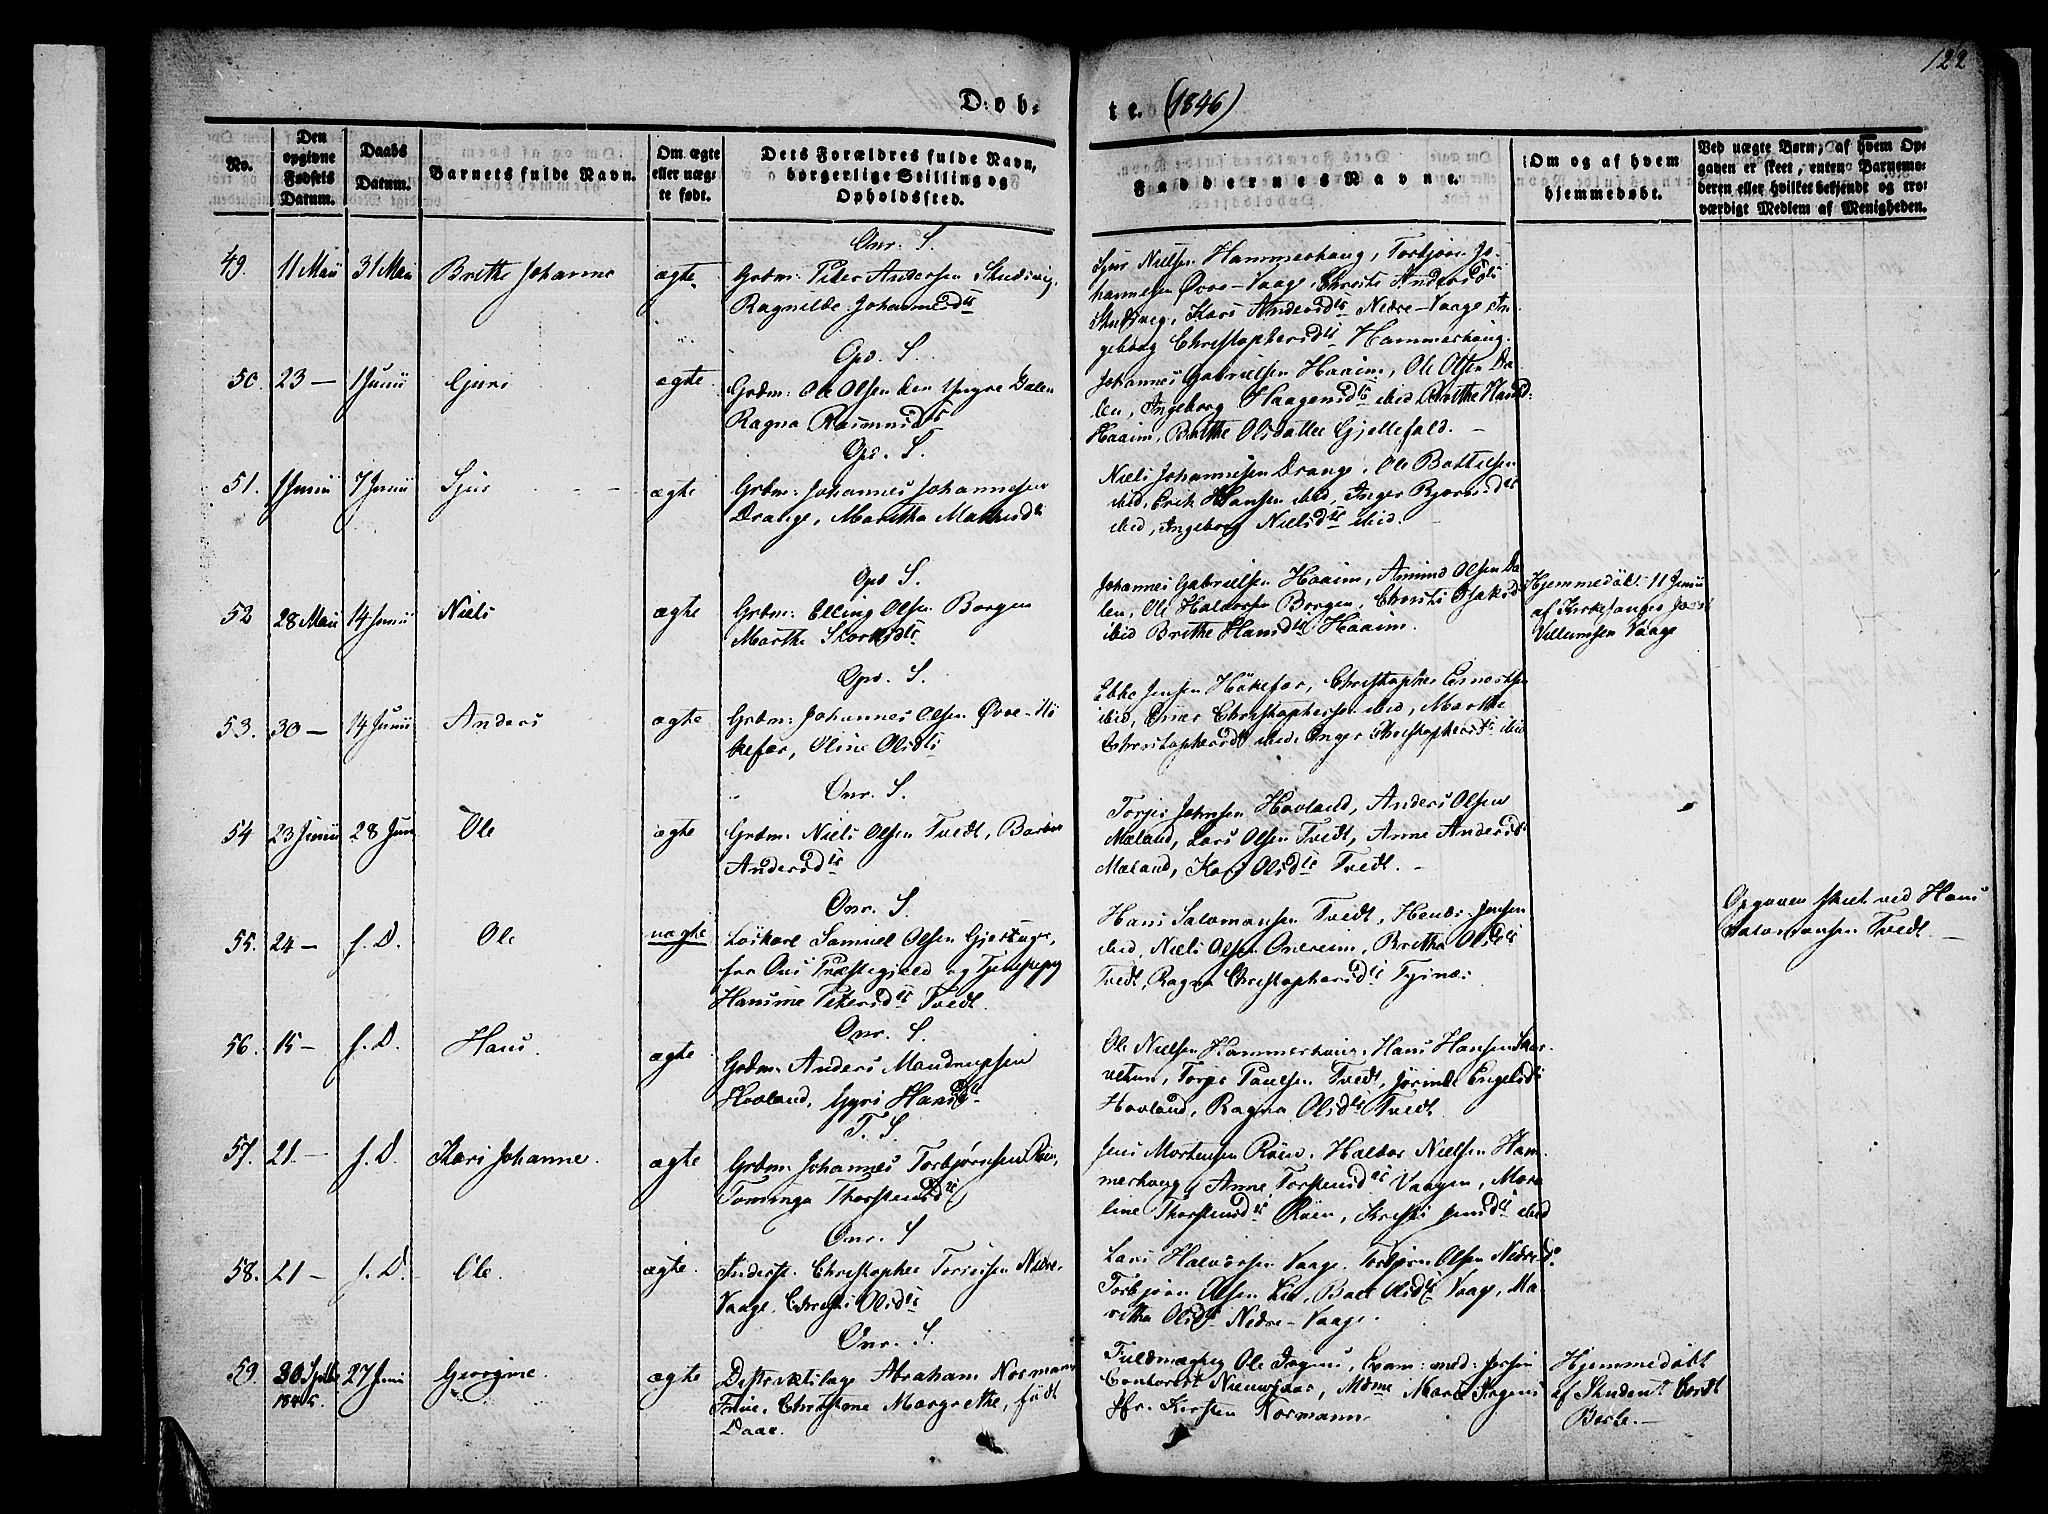 122
Døb-
te. (1846)
No.
Den opgivne Fødsels Datum.
Daabs Datum.
Barnets fulde Navn.
Om ægte eller uægte født.
Dets Forældres fulde Navn, borgerlige Stilling og Opholdssted.
Faddernes Navne.
Om og af hvem hjemmedøbt.
Ved uægte Børn, af hvem Opgaven er skeet, enten Barnemoderen eller hvilket bekjendt og troværdigt Medlem af Menigheden.
Onr. S.
49. 11 Maii 31 Maii Brithe Johanne ægte Grbm: Peder Andersen Skudsvig,
Ragnilde Johannesdtr
Sjur Nielsen Hammerhaug, Torbjørn Jo-
hannesen Øvre-Vaage, Christi Andersdtr
Kari Andersdtr Nedre-Vaage, In-
geborg Christophersdtr Hammerhaug.
Opd. S.
50. 23 — 1 Junii Gjuri ægte Grbm: Ole Olsen den Yngre Dalen
Ragna Rasmusdtr
Johannes Gabrielsen Haaim, Ole Olsen Da-
len, Ingeborg Haagensdtr ibid, Brithe Hansd:
Haaim, Brithe Olsdatter Gjellefald. —
Opd. S.
51. 1 Junii 7 Junii Sjur ægte Grbm: Johannes Johannesen
Drange, Maritha Mathisdtr
Niels Johannesen Drange, Ole Bottelsen
ibid, Erik Hansen ibid, Inger
ibid, Ingeborg Nielsdtr ibid.
Opd S.
52 28 Maii 14 Junii Niels ægte Grbm: Elling Olsen Borgen
Marthe
Johannes Gabrielsen Haaim, Amund Olsen Da-
len, Ole Haldorsen Borgen, Christi
ibid Brithe Hansdtr Haaim.
Hjemmedøbt 11 Junii
af Kirkesanger
Villumsen Vaage
Opd. S.
53. 30 — 14 Junii Anders ægte Grbm: Johannes Olsen Øvre-Hö-
kefar, Oline Olsdtr
Ebbe Jensen Hökefar, Christopher
ibid, Einer Christophersen ibid, Marthe
Christophersdtr ibid, Inger Christophersdtr ibid
Onr. S.
54 23 Junii 28 Juni Ole ægte Grbm: Niels Olsen Tvedt, Barbra
Andersdtr
Torger Johnsen Hovland, Anders Olsen
Mæland, Lars Olsen Tvedt, Anne Andersdtr
Mæland, Kari Olsdtr Tvedt. —
Onr. S.
55. 24 — s. D. Ole uægte Löskarl Samuel Olsen
fra Ous Præstegjeld og Tjenestepige
Hansine Petersdtr Tvedt.
Hans Salomonsen Tvedt, Jensen
ibid, Niels Olsen Onereim, Britha Olsdtr
Tvedt, Ragna Christophersdtr Tysnæs
Opgaven skeet ved Hans
Salomonsen Tvedt. —
Onr. S.
56. 15 — s. D. Hans. ægte Grbm: Anders Mandrupsen
Hovland, Gyri Hansdtr
Ole Nielsen Hammerhaug, Hans Hansen
Torger Paulsen Tvedt, Engelsdtr
Hovland, Ragna Olsdtr Tvedt
T. S.
57. 21 — s. D. Kari Johanne. ægte Grbm: Johannes Torbjørnsen Röen,
Thorstensdtr
Jens Mortensen Röen, Haldor Nielsen Ham-
merhaug, Anne Torstensdtr Vaagen, Mar-
line Thorstensdtr Röen, Kristi Jensdtr ibid
Onr. S
58. 21 — s. D. Ole. ægte. Christopher Nedre-
Vaage, Christi Olsdtr
Lars Halvorsen Vaage, Torbjørn Olsen Nedre do
Torbjørn Olsen Lie, Olsdtr Vaage, Ma-
ritha Olsdtr Nedre-Vaage.
Onr. S.
59. 30 1845. 27 Juni Georgine. ægte Distriktslæge Abraham Normann
Frue, Christine Margrethe, født
Daae.
Fuldmægtig Ole Irgens, Exam: med: Jersin
Contorist Mdme Irgens
Kirsten Normann
Hjemmedøbt
af Student